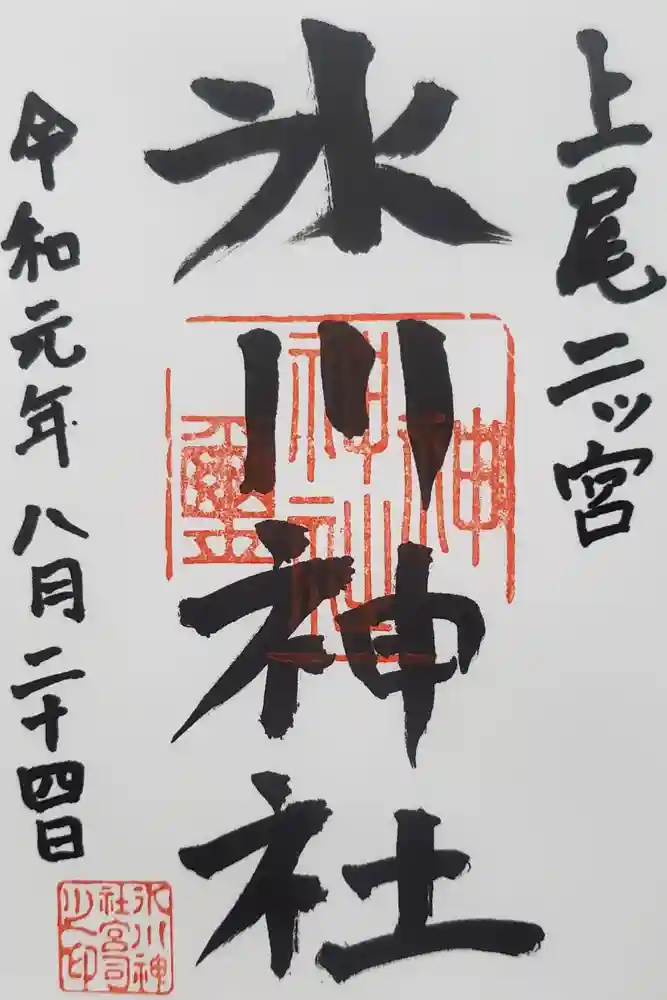 上尾二ッ宮
氷川神社
令和元年八月二十四日
氷川神
社宮司
之印